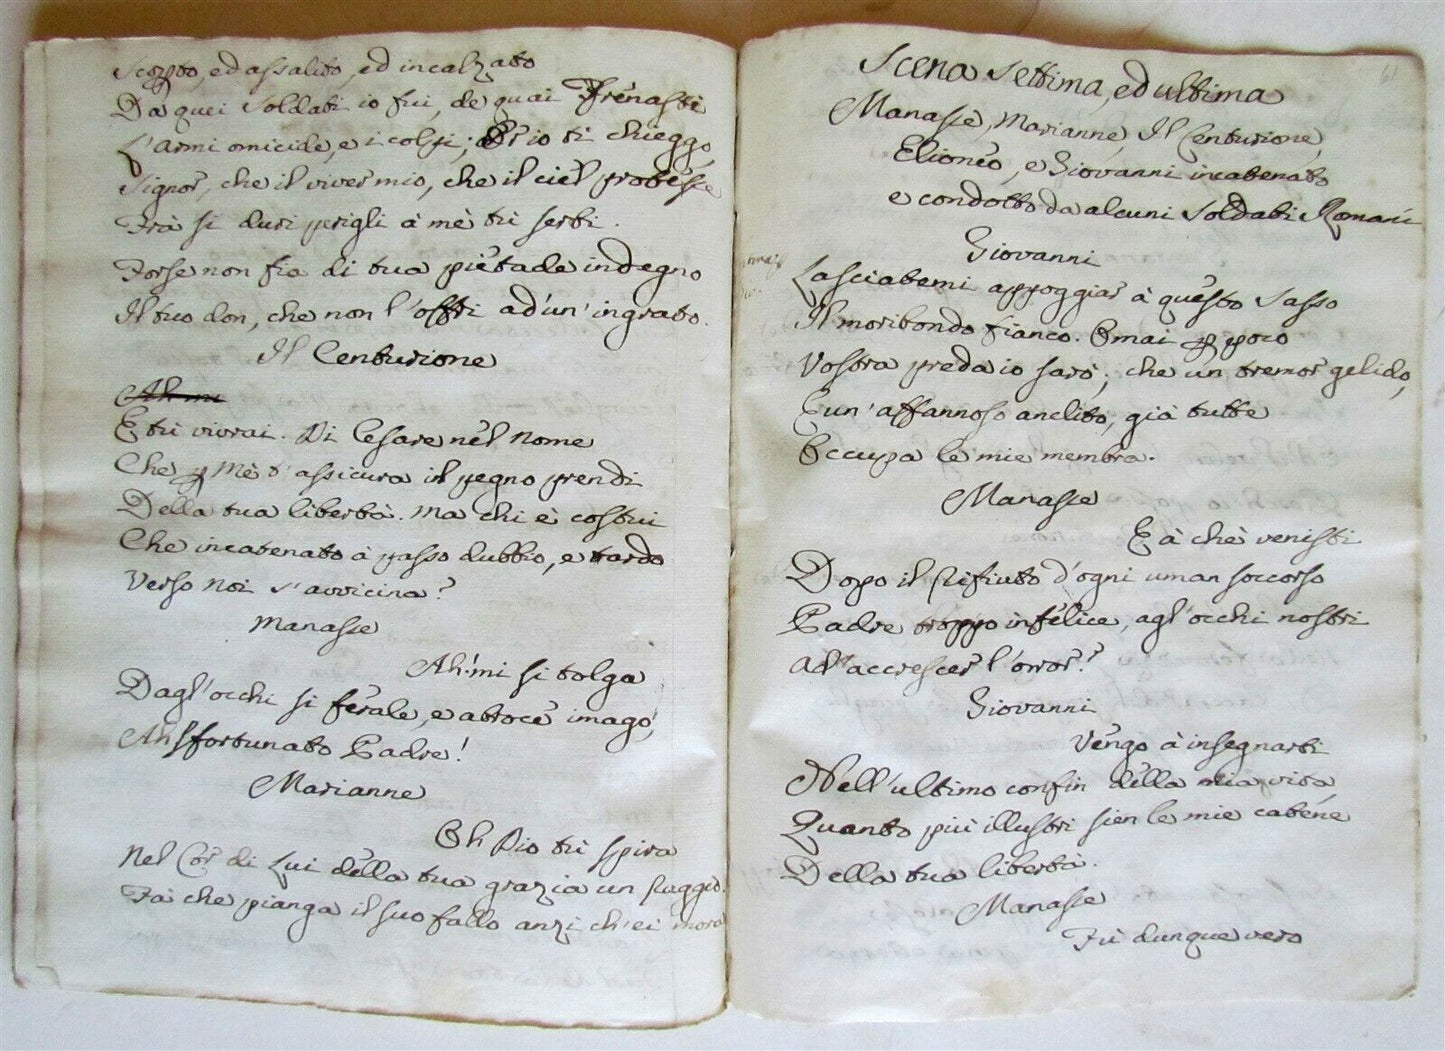 Scorto, ed assalito, ed incalzato
Da quei Soldati io fui, de quai Frenasti
L'armi omicide, e i colpi; Or io ti chieggo
Signor, che il viver mio, che il ciel protesse
Frà si duri perigli à mè tu serbi.
Forse non fia di tua pietade indegno
Il tuo don, che non l'offri ad un' ingrato.
Il Centurione
Ah mi
E tu vivrai. Di Cesare nel nome
Che p mè t'assicura il pegno prendi
Della tua libertà. Ma chi è costui
Che incatenato à passo dubbio, e tardo
Verso noi s'avvicina?
Manasse
Ah! mi si tolga
Dagl'occhi si ferale, e atroce imago,
Ah sfortunato Padre!
Marianne
Oh Dio tu spira
Nel Cor di Lui della tua grazia un raggio.
Fà che pianga il suo fallo anzi ch'ei mora
61
Scena Settima, ed ultima
Manasse, Marianne, Il Centurione,
Elioneo, e Giovanni incatenato
e condotto da alcuni Soldati Romani
Giovanni
Lasciatemi appoggiar à questo Sasso
Il moribondo fianco. Omai p poco
Vostra preda io sarò; che un tremor gelido,
E un' affannoso anelito, già tutte
Occupa le mie membra.
Manasse
E à chè venisti
Dopo il rifiuto d'ogni uman soccorso
Padre troppo infelice, agl'occhi nostri
Ad accrescer l'orror?
Giovanni
Vengo à insegnarti
Nell'ultimo confin della mia vita
Quanto più illustri sien le mie catene
Della tua libertà.
Manasse
Fù dunque vero